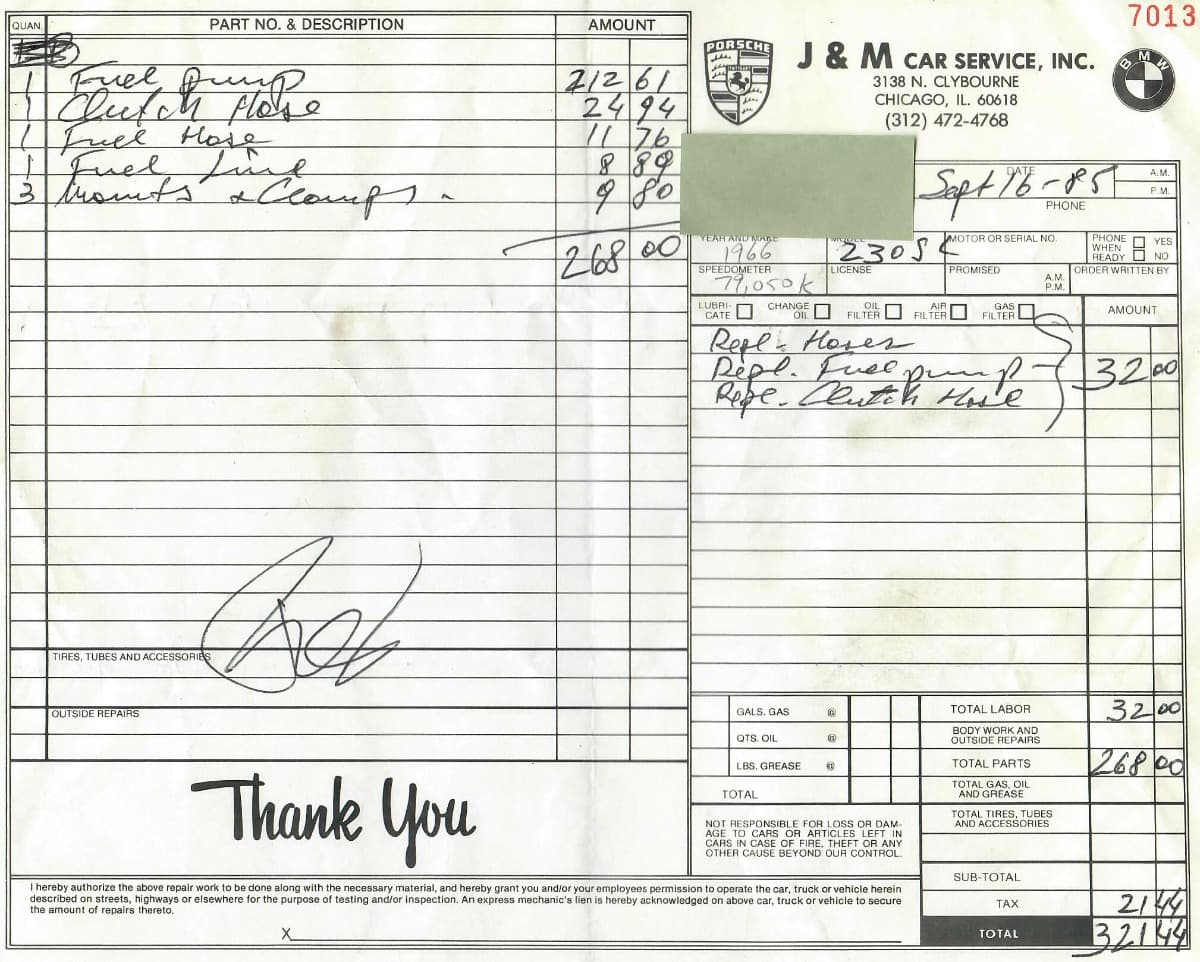 7013
QUAN. PART NO. & DESCRIPTION AMOUNT
1 Fuel pump 212 61
1 Clutch Hose 24 94
1 Fuel Hose 11 76
1 Fuel Line 8 89
3 Mounts & Clamps - 9 80
268 00
TIRES, TUBES AND ACCESSORIES
OUTSIDE REPAIRS
Thank You
I hereby authorize the above repair work to be done along with the necessary material, and hereby grant you and/or your employees permission to operate the car, truck or vehicle herein
described on streets, highways or elsewhere for the purpose of testing and/or inspection. An express mechanic's lien is hereby acknowledged on above car, truck or vehicle to secure
the amount of repairs thereto.
X
PORSCHE
J & M CAR SERVICE, INC.
BMW
3138 N. CLYBOURNE
CHICAGO, IL. 60618
(312) 472-4768
DATE Sept 16-85 A.M.
P.M.
PHONE
YEAR AND MAKE 1966 MODEL 230SL MOTOR OR SERIAL NO. PHONE WHEN READY YES NO
SPEEDOMETER 79,050K LICENSE PROMISED A.M. P.M. ORDER WRITTEN BY
LUBRICATE CHANGE OIL OIL FILTER AIR FILTER GAS FILTER AMOUNT
Repl - Hoses
Repl. Fuel pump - 32 00
Repl - Clutch Hose
GALS. GAS @ TOTAL LABOR 32 00
QTS. OIL @ BODY WORK AND OUTSIDE REPAIRS
LBS. GREASE @ TOTAL PARTS 268 00
TOTAL TOTAL GAS, OIL AND GREASE
TOTAL TIRES, TUBES AND ACCESSORIES
NOT RESPONSIBLE FOR LOSS OR DAM-
AGE TO CARS OR ARTICLES LEFT IN
CARS IN CASE OF FIRE, THEFT OR ANY
OTHER CAUSE BEYOND OUR CONTROL.
SUB-TOTAL
TAX 21 44
TOTAL 321 44